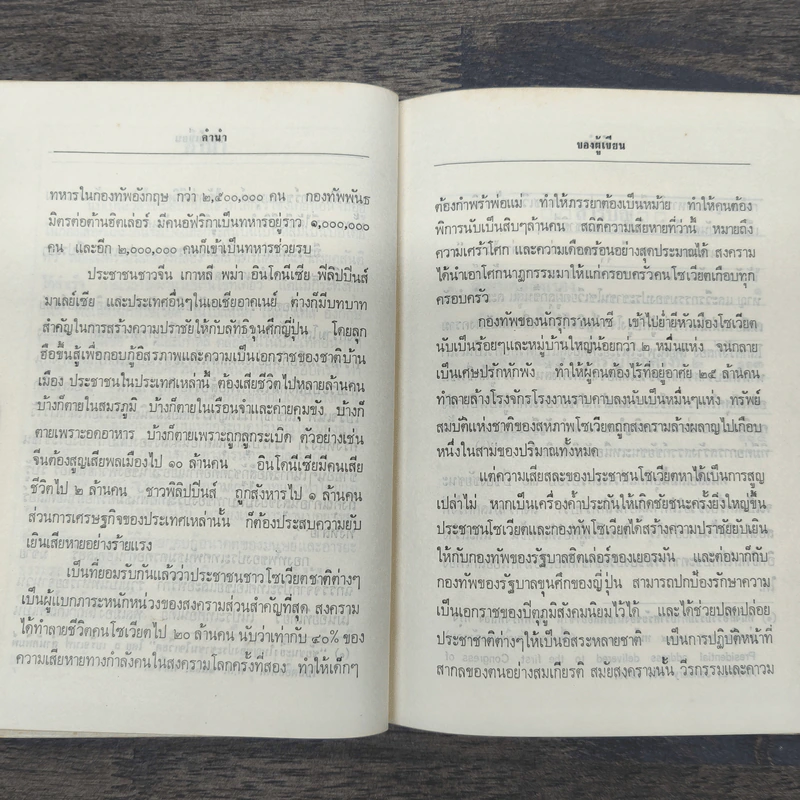 คำนำ
ทหารในกองทัพอังกฤษ กว่า ๒,๕๐๐,๐๐๐ คน กองทัพพันธ
มิตรต่อต้านฮิตเล่อร์ มีคนอัฟริกาเป็นทหารอยู่ราว ๑,๐๐๐,๐๐๐
คน และอีก ๒,๐๐๐,๐๐๐ คนก็เข้าเป็นทหารช่วยรบ
ประชาชนชาวจีน เกาหลี พม่า อินโดนีเซีย ฟีลิปปินส์
มาเลย์เซีย และประเทศอื่นๆในเอเซียอาคเนย์ ต่างก็มีบทบาท
สำคัญในการสร้างความปราชัยให้กับลัทธิขุนศึกญี่ปุ่น โดยลุก
ฮือขึ้นสู้เพื่อกอบกู้อิสรภาพและความเป็นเอกราชของชาติบ้าน
เมือง ประชาชนในประเทศเหล่านี้ ต้องเสียชีวิตไปหลายล้านคน
บ้างก็ตายในสมรภูมิ บ้างก็ตายในเรือนจำและค่ายคุมขัง บ้างก็
ตายเพราะอดอาหาร บ้างก็ตายเพราะถูกลูกระเบิด ตัวอย่างเช่น
จีนต้องสูญเสียพลเมืองไป ๑๐ ล้านคน อินโดนีเซียมีคนเสีย
ชีวิตไป ๒ ล้านคน ชาวฟิลิปปินส์ ถูกสังหารไป ๑ ล้านคน
ส่วนการเศรษฐกิจของประเทศเหล่านั้น ก็ต้องประสบความยับ
เยินเสียหายอย่างร้ายแรง
เป็นที่ยอมรับกันแล้วว่าประชาชนชาวโซเวียตชาติต่างๆ
เป็นผู้แบกภาระหนักหน่วงของสงครามส่วนสำคัญที่สุด สงคราม
ได้ทำลายชีวิตคนโซเวียตไป ๒๐ ล้านคน นับว่าเท่ากับ ๔๐% ของ
ความเสียหายทางกำลังคนในสงครามโลกครั้งที่สอง ทำให้เด็กๆ
ของผู้เขียน
ต้องกำพร้าพ่อแม่ ทำให้ภรรยาต้องเป็นหม้าย ทำให้คนต้อง
พิการนับเป็นสิบๆล้านคน สถิติความเสียหายที่ว่านี้ หมายถึง
ความเศร้าโศก และความเดือดร้อนอย่างสุดประมาณได้ สงคราม
ได้นำเอาโศกนาฏกรรมมาให้แก่ครอบครัวคนโซเวียตเกือบทุก
ครอบครัว
กองทัพของนักรุกรานนาซี เข้าไปย่ำยีหัวเมืองโซเวียต
นับเป็นร้อยๆและหมู่บ้านใหญ่น้อยกว่า ๒ หมื่นแห่ง จนกลาย
เป็นเศษปรักหักพัง ทำให้ผู้คนต้องไร้ที่อยู่อาศัย ๒๕ ล้านคน
ทำลายล้างโรงจักรโรงงานราบคาบลงนับเป็นหมื่นๆแห่ง ทรัพย์
สมบัติแห่งชาติของสหภาพโซเวียตถูกสงครามล้างผลาญไปเกือบ
หนึ่งในสามของปริมาณทั้งหมด
แต่ความเสียสละของประชาชนโซเวียตหาได้เป็นการสูญ
เปล่าไม่ หากเป็นเครื่องค้ำประกันให้เกิดชัยชนะครั้งยิ่งใหญ่ขึ้น
ประชาชนโซเวียตและกองทัพโซเวียตได้สร้างความปราชัยยับเยิน
ให้กับกองทัพของรัฐบาลฮิตเล่อร์ของเยอรมัน และต่อมาก็กับ
กองทัพของรัฐบาลขุนศึกของญี่ปุ่น สามารถปกป้องรักษาความ
เป็นเอกราชของปิตุภูมิสังคมนิยมไว้ได้ และได้ช่วยปลดปล่อย
ประชาชาติต่างๆให้เป็นอิสระหลายชาติ เป็นการปฏิบัติหน้าที่
สากลของตนอย่างสมเกียรติ สมัยสงครามนั้น วีรกรรมและความ